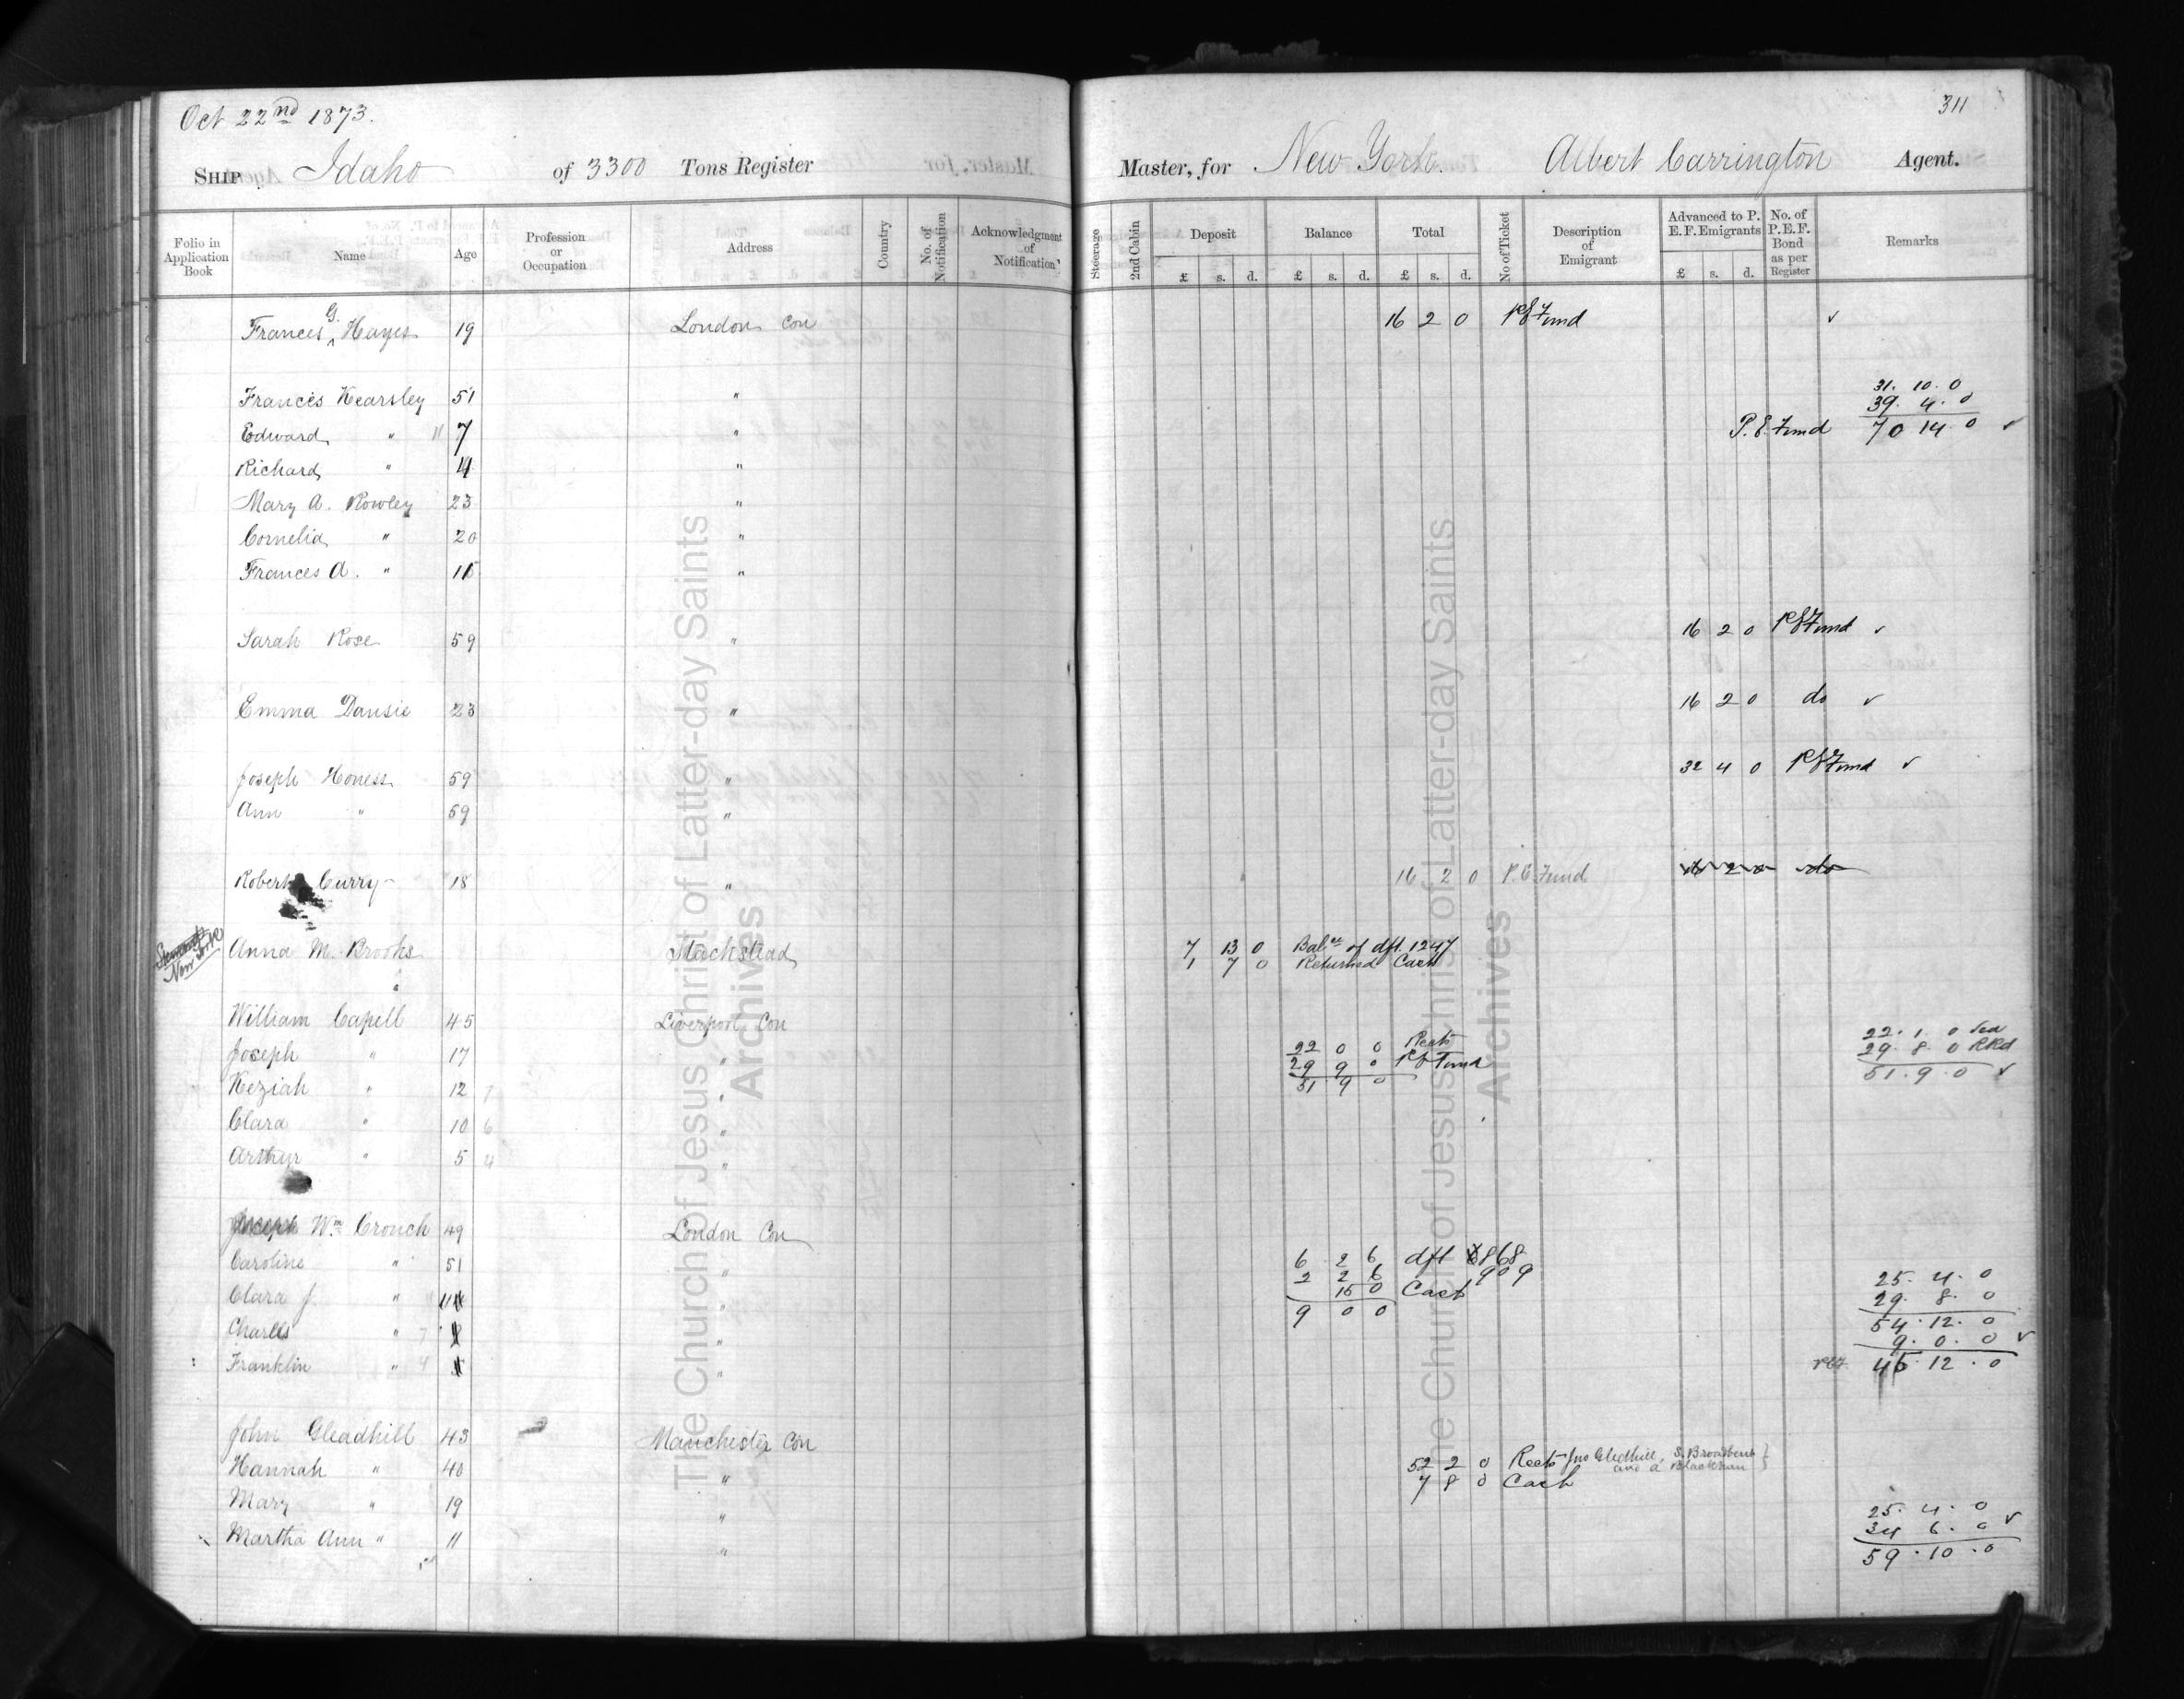 Oct 22nd 1873.
311
Ship Idaho of 3300 Tons Register Master, for New York. Albert Carrington Agent.
Folio in Application Book Name Age Profession or Occupation Address Country No. of Notification Acknowledgment of Notification Steerage 2nd Cabin Deposit Balance Total No of Ticket Description of Emigrant Advanced to P. E. F. Emigrants No. of P.E.F. Bond as per Register Remarks
£ s. d. £ s. d. £ s. d. £ s. d.
Frances G. Hayes 19 London Con 16 2 0 P E Fund ✓
31. 10. 0
Francis Kearsley 51 " 39. 4. 0
Edward " 11 7 " P. E. Fund 70 14 0 ✓
Richard " "
Mary A. Rowley 23 "
Cornelia " 20 "
Frances A. " "
Sarah Rose 59 " 16 2 0 P E Fund ✓
Emma Dansie 23 " 16 2 0 do ✓
Joseph Honess 59 " 32 4 0 P E Fund ✓
Ann " 59 "
Robert Curry 18 " 16 2 0 P. E Fund 16 2 0 do
New York Anna M. Brooks Stackstead 7 13 0 Balce of dft. 1247
1 7 0 Returned Cash
William Capell 45 Liverpool Con 22. 1. 0 Sea
Joseph " 17 " 22 0 0 Rects 29. 8. 0 RRd
Keziah " 12 7 " 29 9 0 P E Fund 51. 9. 0 ✓
51 9 0
Clara " 10 6 "
Arthur " 5 4 "
Joseph Wm Crouch 49 London Con
Caroline " 51 " 6 2 6 dft 8868
2 2 6 909 25. 4. 0
Clara J. " " 15 0 Cash 29. 8. 0
9 0 0 54. 12. 0
Charles " 7 " 9. 0. 0 ✓
Franklin " 4 " PEF 45. 12. 0
John Gleadhill 43 Manchester Con
Hannah " 40 " 52 2 0 Rects Jno Gledhill, S. Broadbent and A Blackman
7 8 0 Cash
Mary " 19 " 25. 4. 0
Martha Ann " 11 " 34 6. 0 ✓
59. 10. 0
The Church of Jesus Christ of Latter-day Saints
Archives
The Church of Jesus Christ of Latter-day Saints
Archives